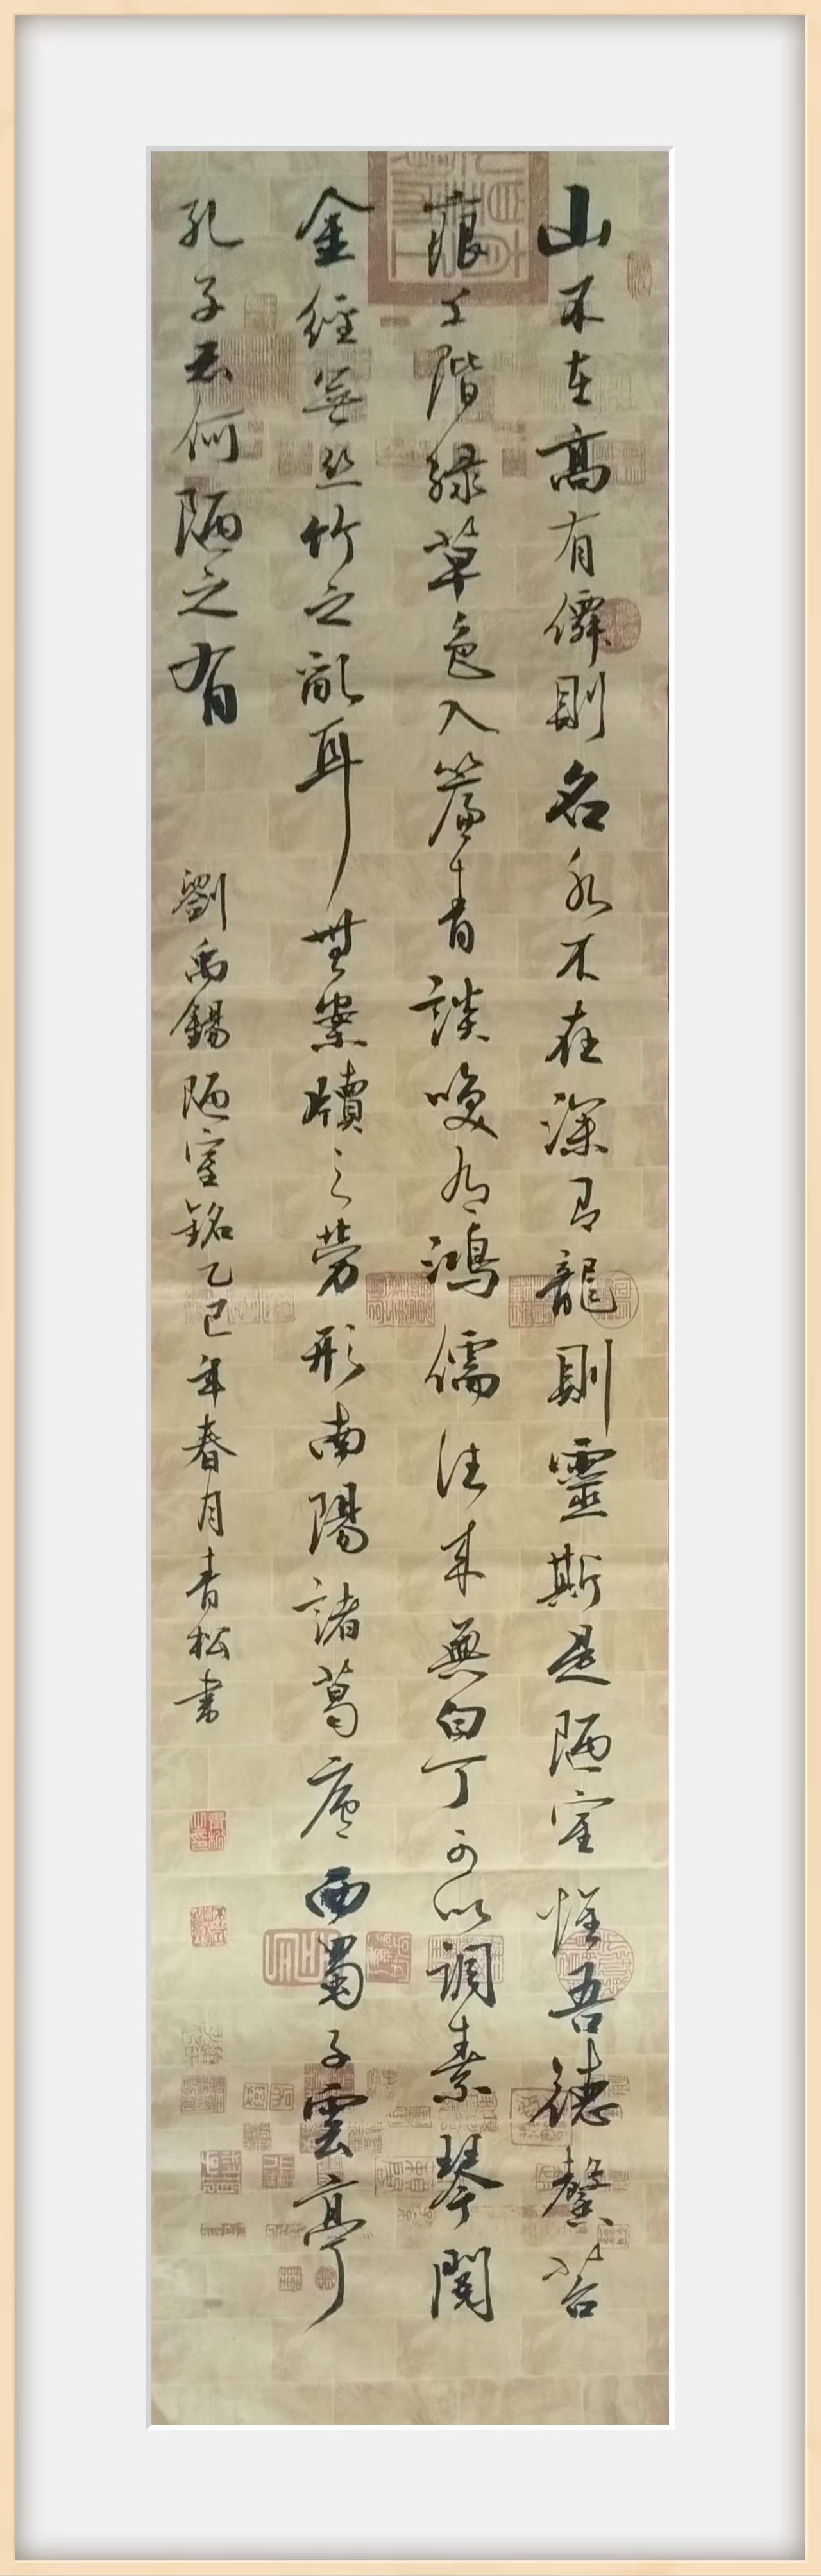 山不在高有僊則名水不在深有龍則靈斯是陋室惟吾德馨苔
痕上階綠草色入簾青談咲有鴻儒往來無白丁可以調素琴閱
金經無絲竹之亂耳無案牘之勞形南陽諸葛廬西蜀子雲亭
孔子云何陋之有
劉禹錫陋室銘乙巳年春月青松書